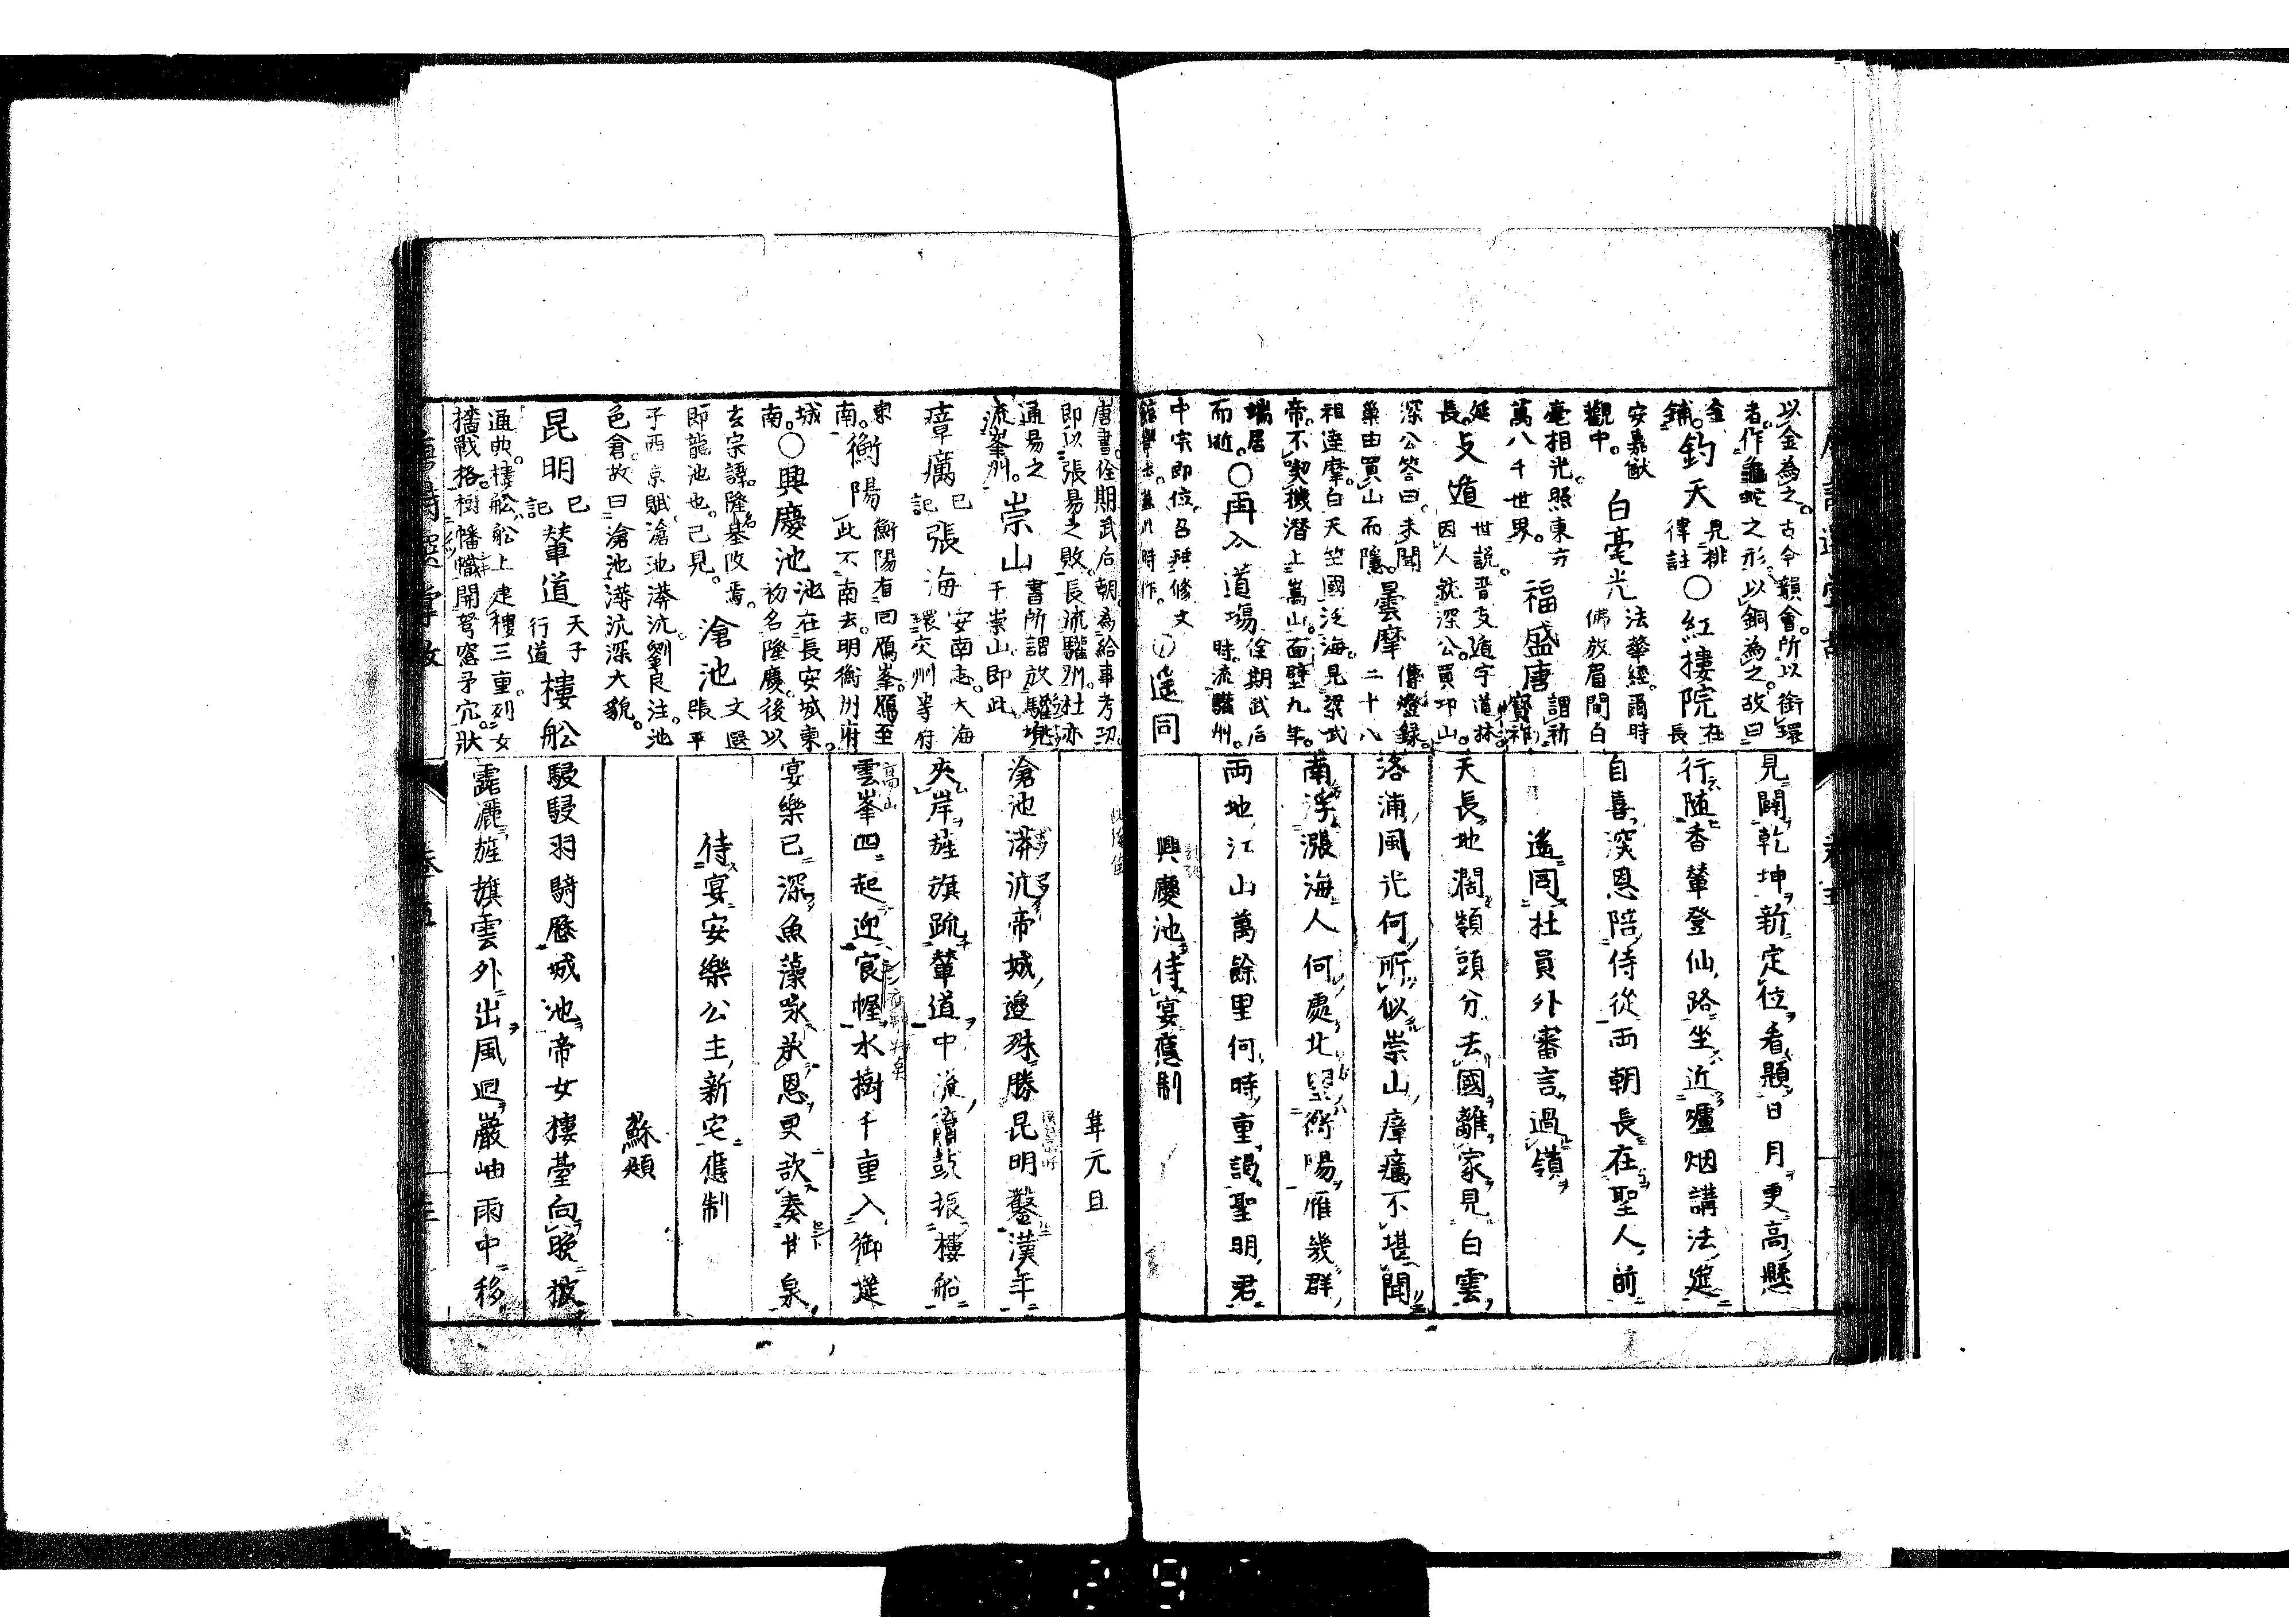 以金為之。古今韻會。所以銜環
者。作龜蛇之形。以銅為之。故曰
金鋪。
釣天
見排律註
○紅樓院
在長安嘉猷觀中。
白毫光
法華經。爾時佛放眉間白毫相光。照東方萬八千世界。
福盛唐
謂新寶祚延長。
支遁
世説。晋支遁字道林。因人就深公。買卬山。深公答曰。未聞巢由買山而隱。
曇摩
傳燈録。二十八祖達摩。自天竺國泛海。見梁武帝。不契機。潜上嵩山。面壁九年。端居而逝。
○再入道場
佺期武后時。流驩州。中宗即位。召拜修文
遥同
唐書。佺期武后朝。為給事考功。即以張易之敗。長流驩州。杜亦通易之流峯州。
崇山
書所謂放驩兜于崇山。即此。
瘴癘
已記
張海
安南志。大海環交州等府東南。
衡陽
衡陽有回鴈峯。鴈至此不南去。明衡州府城南。
○興慶池
池在長安城東。初名隆慶。後以玄宗諱隆基改焉。即龍池也。已見。
滄池
文選張平子西京賦。滄池漭沆。劉良注。池色倉。故曰滄池。漭沆深大貌。
昆明
已記
輦道
天子行道
樓舩
通典。樓舩。舩上建樓三重。列女墻戰格。樹幡幟。開弩窓矛穴。狀
見闢乾坤新定位看題日月更高懸
行隨香輦登仙路坐近爐烟講法筵
自喜深恩陪侍從両朝長在聖人前
遙同杜員外審言過嶺
天長地濶嶺頭分去國離家見白雲
洛浦風光何所似崇山瘴癘不堪聞
南浮漲海人何處北望衡陽雁幾群
両地江山萬餘里何時重謁聖明君
興慶池侍宴應制
韋元旦
滄池漭沆帝城邉殊勝昆明鑿漢年
夾岸旌旗疏輦道中流簫鼓振樓船
雲峯四起迎宸幄水樹千重入御筵
宴樂已深魚藻咏承恩更欲奏甘泉
侍宴安樂公主新宅應制
蘇頲
駸駸羽騎歴城池帝女樓臺向晩披
霧灑旌旗雲外出風迴巖岫雨中移